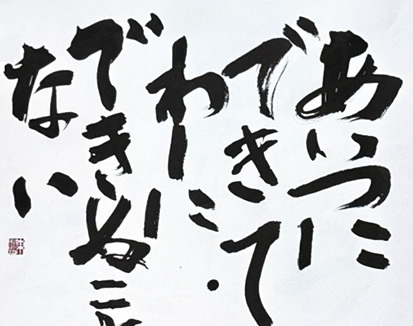 あいつに
できて
わしに・
できぬこと
ない